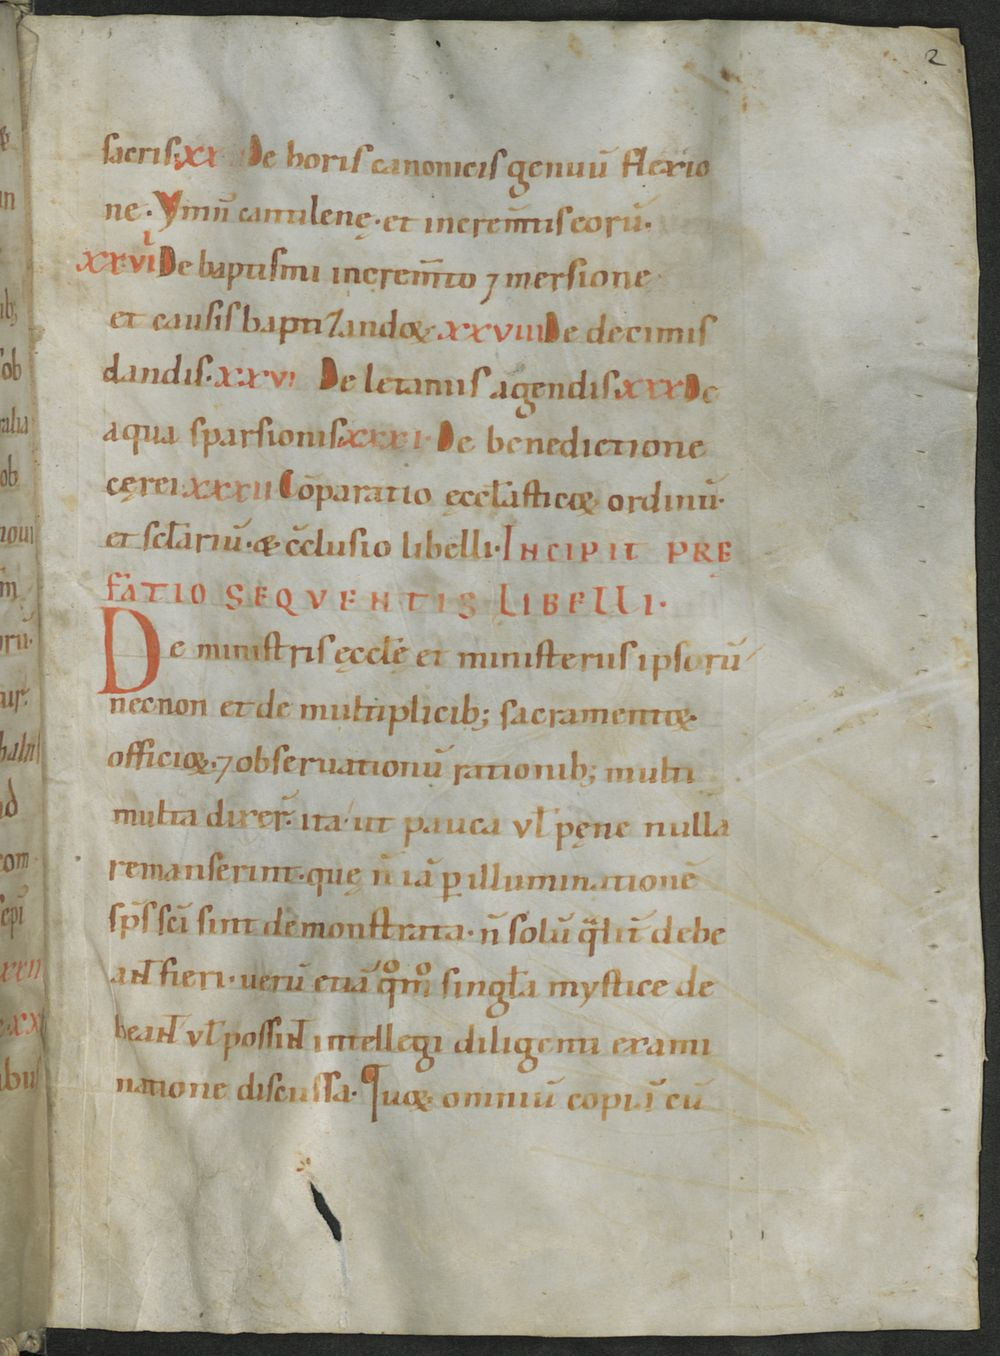 2
sacris. xx De horis canonicis genuū flexio
ne. Ymnū cantilenę. et increm̄tis eorū.
xxvii De baptismi increm̄to ⁊ mersione
et causis baptizandoꝝ. xxviii De decimis
dandis. xxvi De letaniis agendis. xxx De
aqua sparsionis. xxxi. De benedictione
cęrei. xxxii Cōparatio ęccl̄asticoꝝ ordinū.
et scl̄ariū. & c̄clusio libelli. INCIPIT PRE
FATIO SEQVENTIS LIBELLI.
De ministris ęccl̄ę et ministeriis ipsorū
necnon et de multiplicib; sacramentoꝝ.
officioꝝ. ⁊ observationū rationib; multi
multa dixer̄. ita ut pauca vl̄ pęne nulla
remanserint. quę n̄ iā ꝑ illuminationē
sp̄s sc̄i sint demonstrata. n̄ solū q̄lit̄ debe
ant fieri. uerū etiā qͦmͦ singl̄a mystice de
beant vl̄ possint intellegi diligenti exami
natione discussa. Quoꝝ omniū copiā cū